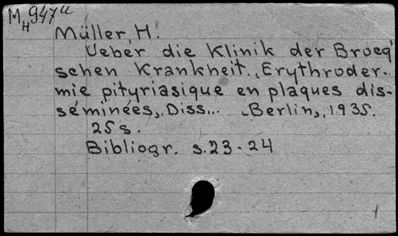 MH947u
Müller, H.
Ueber die Klinik der Brocq'
schen Krankheit „Erythroder-
mie pityriasique en plaques dis-
séminées„ Diss... „Berlin„ 1935.
25 s.
Bibliogr. s.23-24